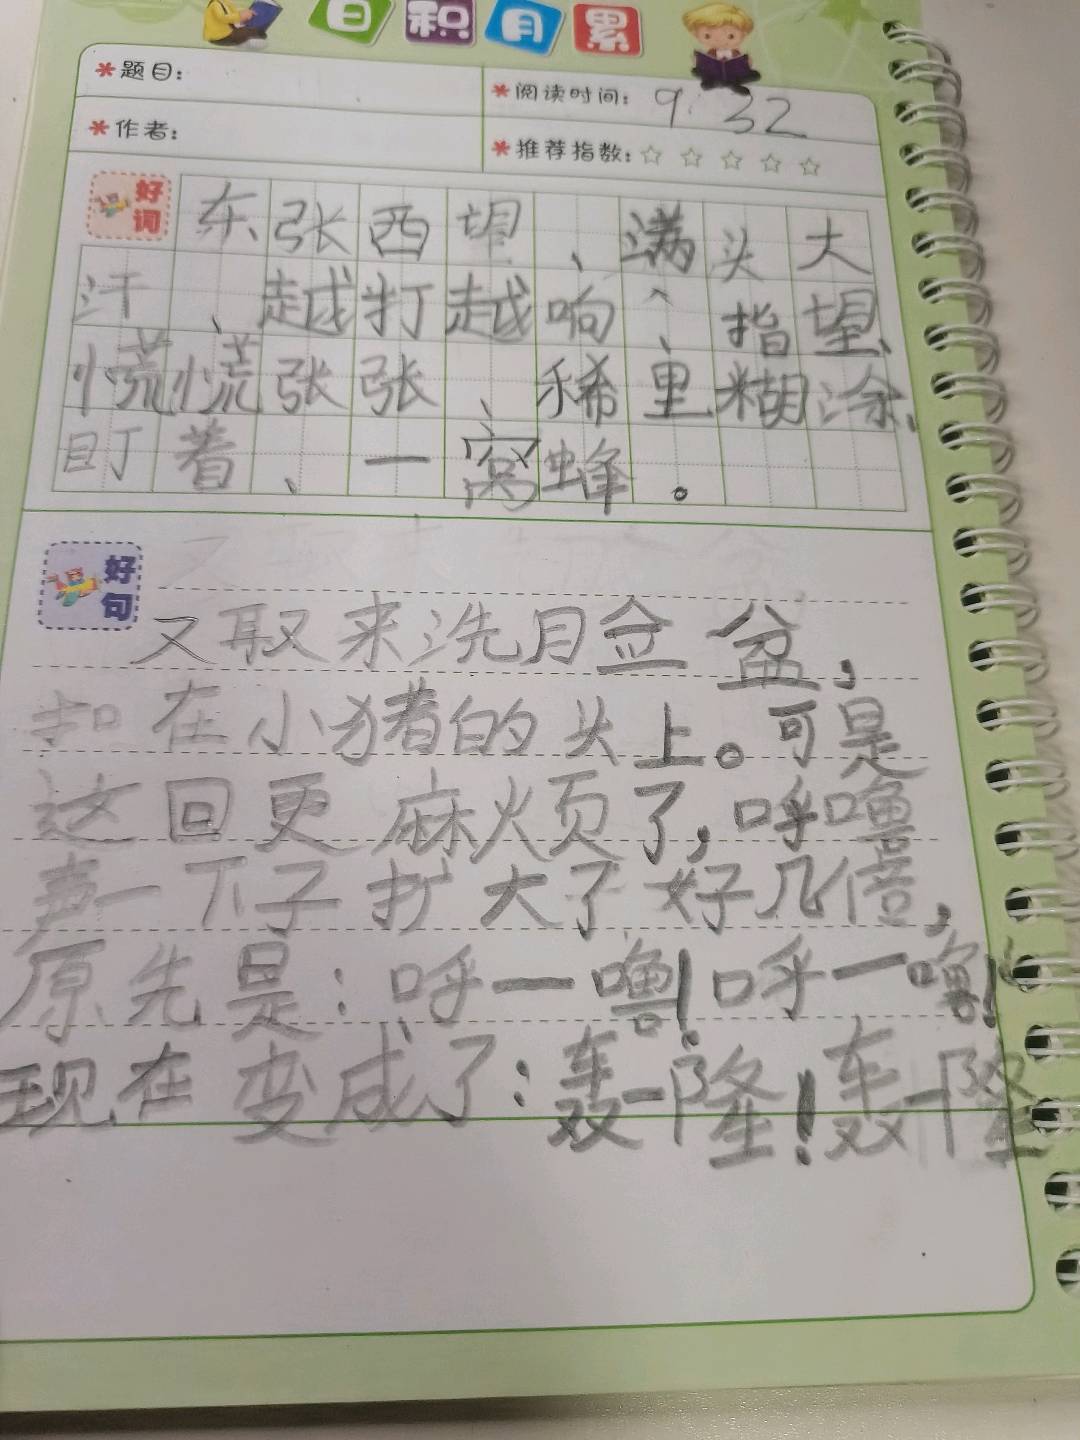 日积月累
*题目:
*阅读时间: 9:32
*作者:
*推荐指数:☆☆☆☆☆
好词
东张西望、满头大
汗、越打越响、指望、
慌慌张张、稀里糊涂、
盯着、一窝蜂。
好句
又取来洗月佥盆,
扣在小猪的头上。可是
这回更麻烦了,呼噜
声一下子扩大了好几倍,
原先是:呼一噜!呼一噜!
现在变成了:轰一隆!轰一隆